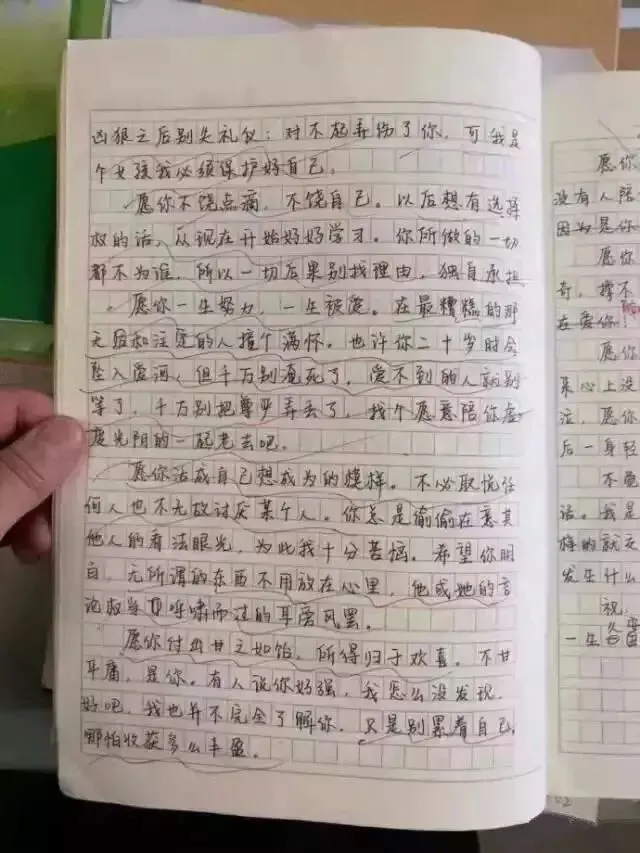 凶狠之后别失礼仪：对不起弄伤了你，可我是
个女孩我必须保护好自己。
愿你不饶点病，不饶自己。以后想有选择
权的话，从现在开始好好学习。你所做的一切
都不为谁，所以一切后果别找理由，独自承担
愿你一生努力，一生被爱。在最糟糕的那
天因和注定的人撞个满怀。也许你二十岁时会
坠入爱河，但千万别淹死了，爱不到的人就别
等了，千万别把尊严弄丢了，找个愿意陪你虚
度光阴的一起老去吧。
愿你活成自己想成为的模样。不必取悦任
何人也不无故讨厌某个人。你总是偷偷在意其
他人的看法眼光，为此我十分苦恼。希望你明
白，无所谓的东西不用放在心里，他或她的言
论权当耳呼啸而过的耳旁风罢。
愿你付出甘之如饴，所得归于欢喜。不甘
平庸，是你。有人说你好强，我怎么没发现。
好吧，我也并不完全了解你。只是别累着自己，
哪怕收获多么丰盈。
愿你
没有人陪
因为是你
愿你
奇，撑不
在爱你！
愿你
来心上没
注，愿你
后一身轻
不
话。我是
旖的就
发生什么
祝
一生